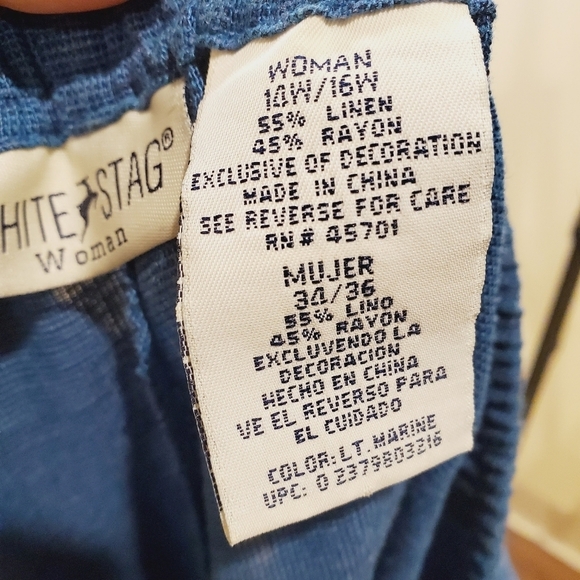 HITE STAG®
Woman
WOMAN
14W/16W
55% LINEN
45% RAYON
EXCLUSIVE OF DECORATION
MADE IN CHINA
SEE REVERSE FOR CARE
RN# 45701
MUJER
34/36
55% LINO
45% RAYON
EXCLUVENDO LA
DECORACION
HECHO EN CHINA
VE EL REVERSO PARA
EL CUIDADO
COLOR: LT. MARINE
UPC: 0 2379803216